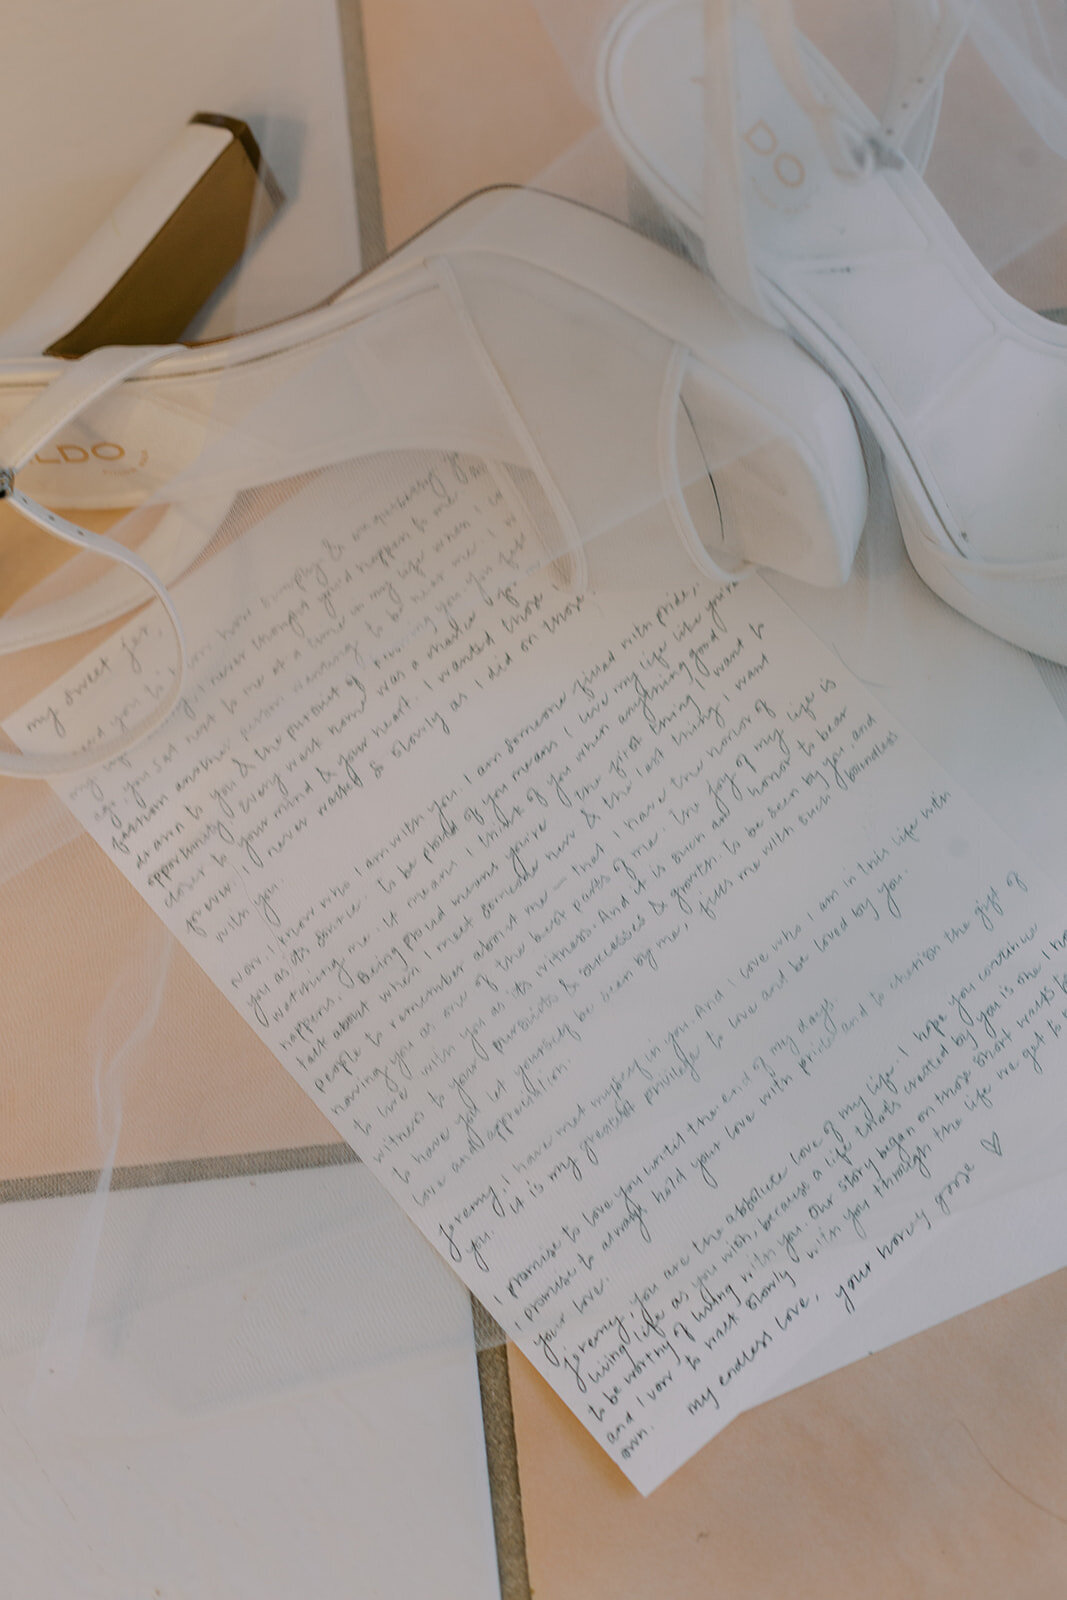 DO
LDO
my sweet Jer,
how simply & unquestionably
never thought you'd happen to me
ago, you sat next to me at a time in my life when I
fashion another person wanting to be near me. I
drawn to you & the pursuit of knowing you. You felt
opportunity. Every walk home was a chance
closer to your mind & your heart. I wanted those
forever. I never walked so slowly as I did on those
with you.
Now, I know who I am with you. I am someone filled with pride,
you as its source. To be proud of you means I live my life like you're
watching me. It means I think of you when anything good
happens. Being proud means you're the first thing I want to
talk about when I meet someone new & the last thing I want
people to remember about me — that I have the honor of
having you as one of the best parts of me. The joy of my life is
to live it with you as its witness. And it is such an honor to bear
witness to your pursuits & successes & growth. To be seen by you, and
to have you let yourself be seen by me, fills me with such boundless
love and appreciation.
Jeremy, I have met myself in you. And I love who I am in this life with
you. It is my greatest privilege to love and be loved by you.
I promise to love you until the end of my days.
I promise to always hold your love with pride and to cherish the gift of
your love.
Jeremy, you are the absolute love of my life. I hope you continue
living life as you wish, because a life that's created by you is one I
to be worthy of living with you. Our story began on those short walks
and I vow to walk slowly with you through the life we get to
own.
my endless love, your honey goose ♡